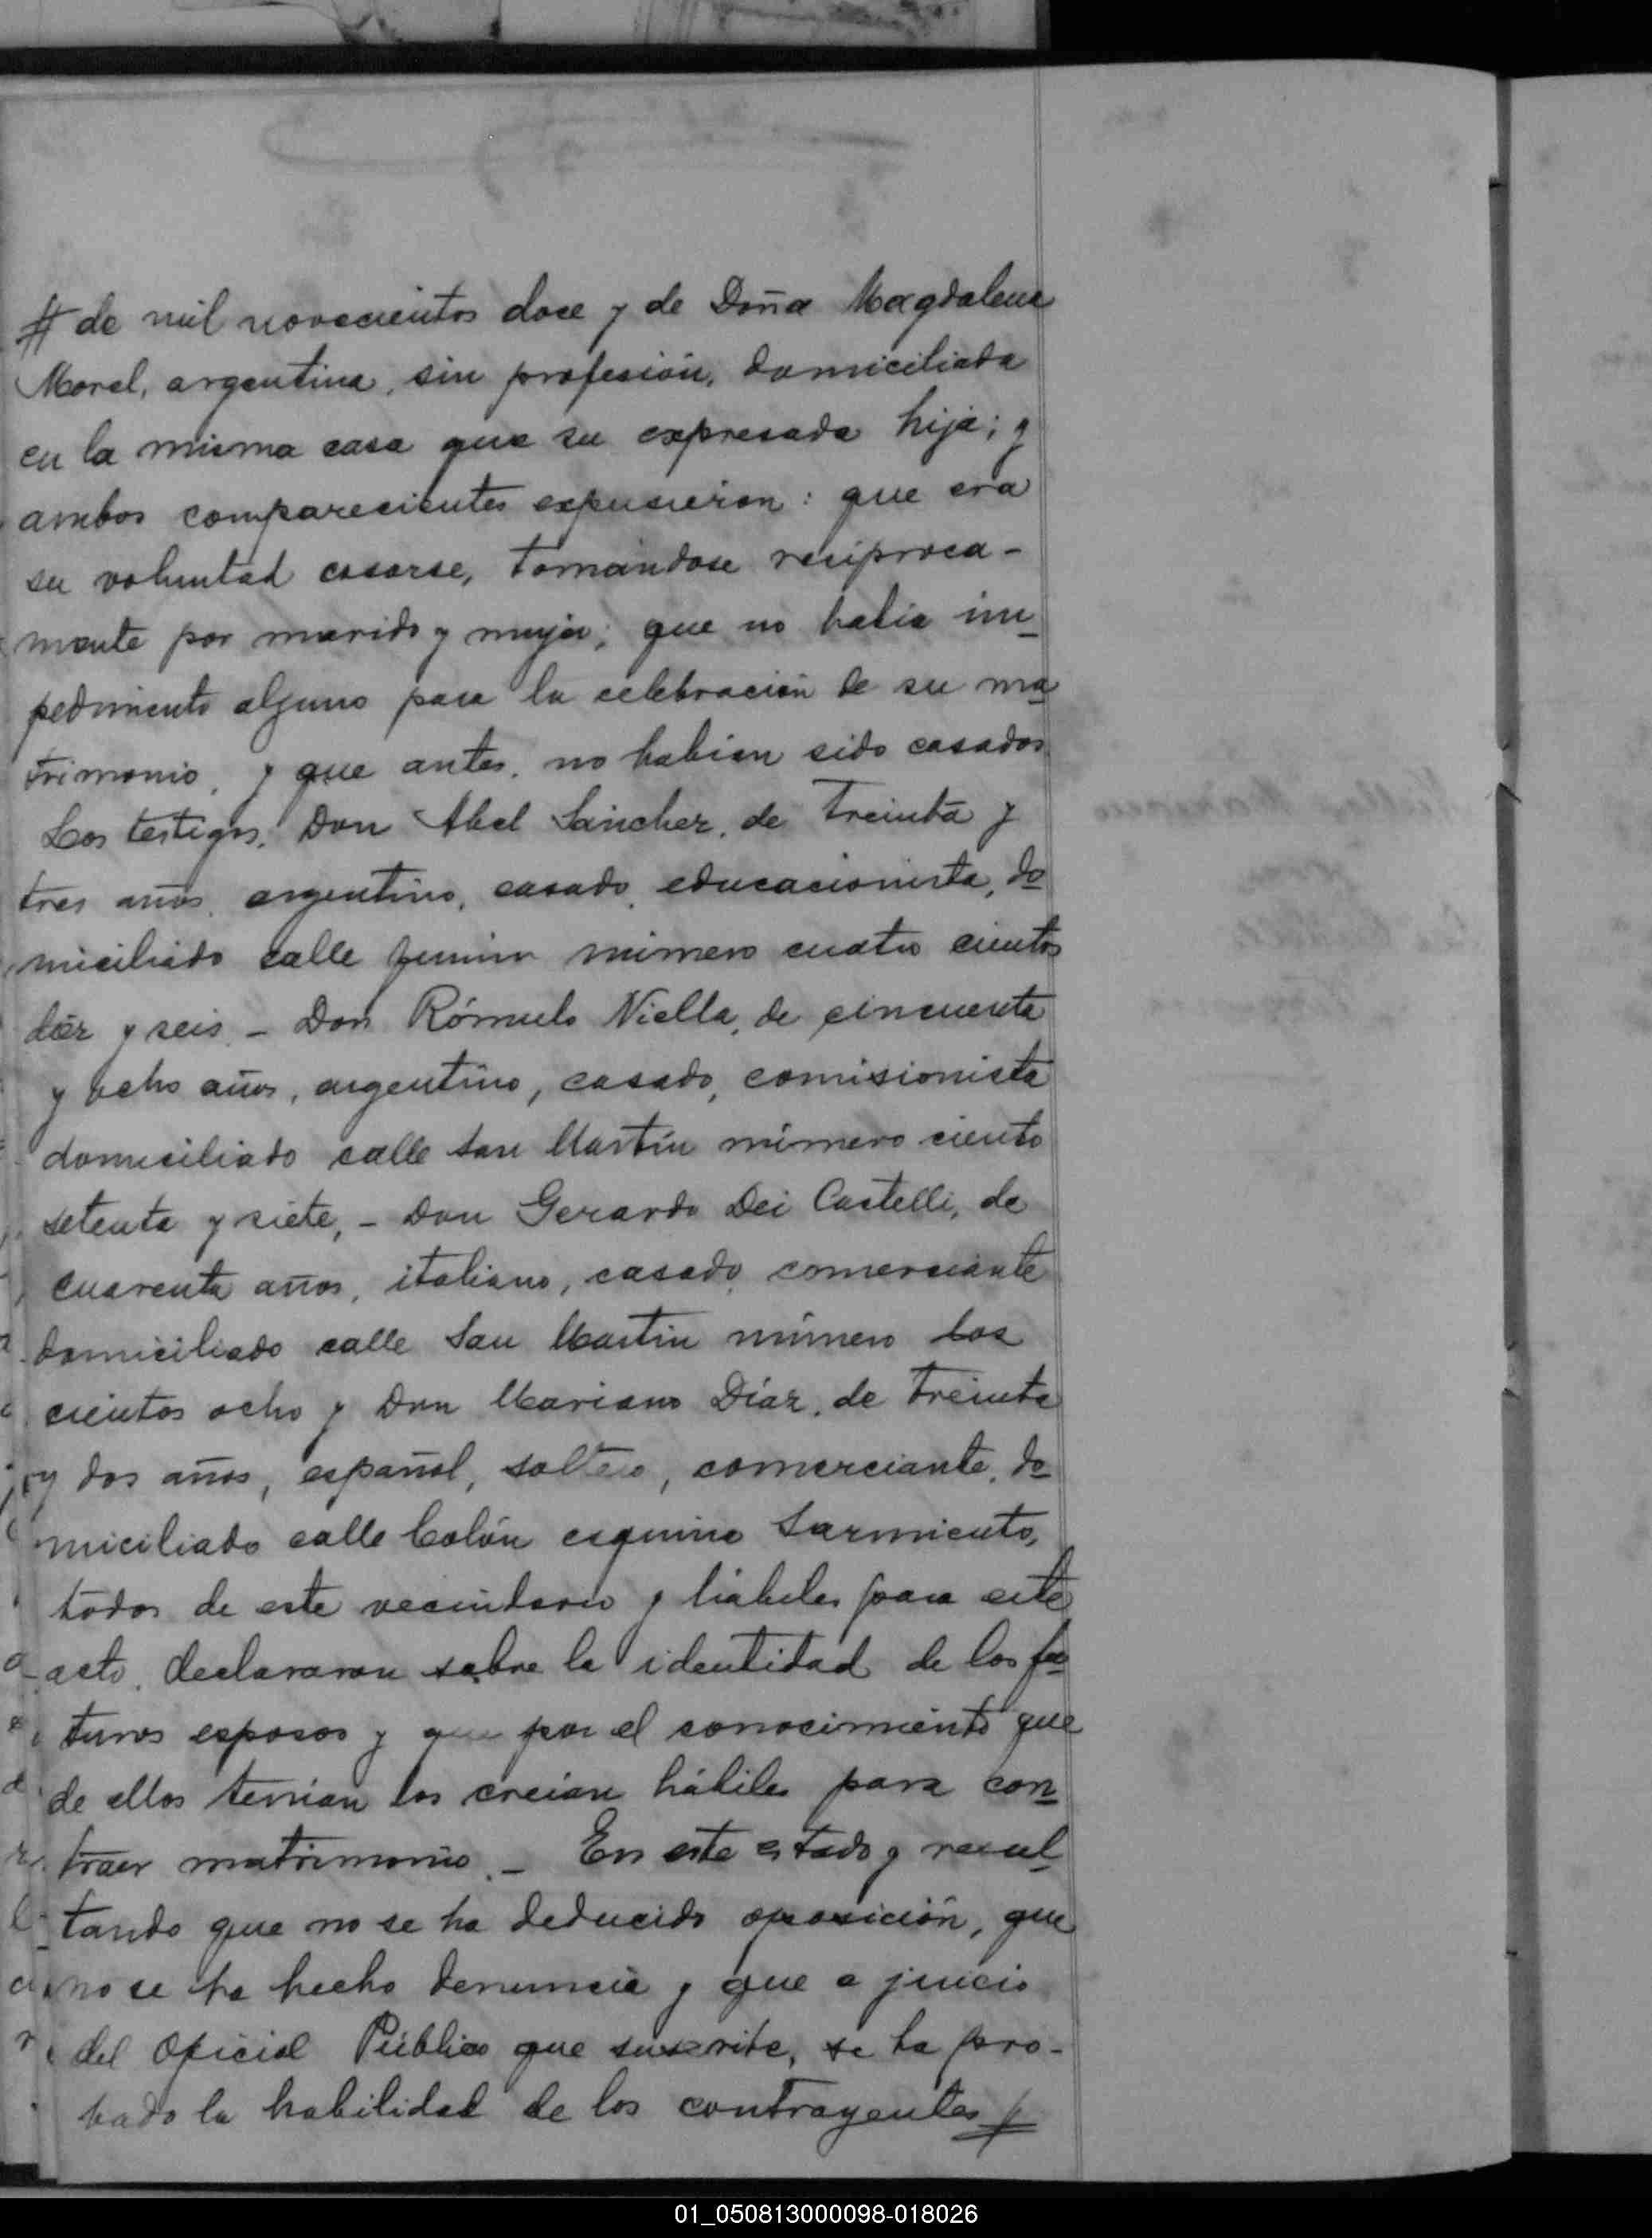 # de mil novecientos doce y de Doña Magdalena
Morel, argentina, sin profesión, domiciliada
en la misma casa que su expresada hija; y
ambos comparecientes expusieron: que era
su voluntad casarse, tomándose recíproca-
mente por marido y mujer; que no había im-
pedimento alguno para la celebración de su ma-
trimonio, y que antes, no habían sido casados
Los testigos, Don Abel Sánchez, de treinta y
tres años, argentino, casado, educacionista, do-
miciliado calle Junin número cuatro cientos
diez y seis. - Don Rómulo Niella, de cincuenta
y ocho años, argentino, casado, comisionista
domiciliado calle San Martín número ciento
setenta y siete, - Don Gerardo Dei Castelli, de
cuarenta años, italiano, casado, comerciante
domiciliado calle San Martin número dos
cientos ocho y Don Mariano Díaz, de treinta
y dos años, español, soltero, comerciante, do-
miciliado calle Colón esquina Sarmiento,
todos de este vecindario y hábiles para este
acto, declararon sobre la identidad de los fu-
turos esposos y que por el conocimiento que
de ellos tenían los creían hábiles para con-
traer matrimonio. - En este estado y resul-
tando que no se ha deducido oposición, que
no se ha hecho denuncia y que a juicio
del Oficial Público que suscribe, se ha pro-
bado la habilidad de los contrayentes #
01_050813000098-018026